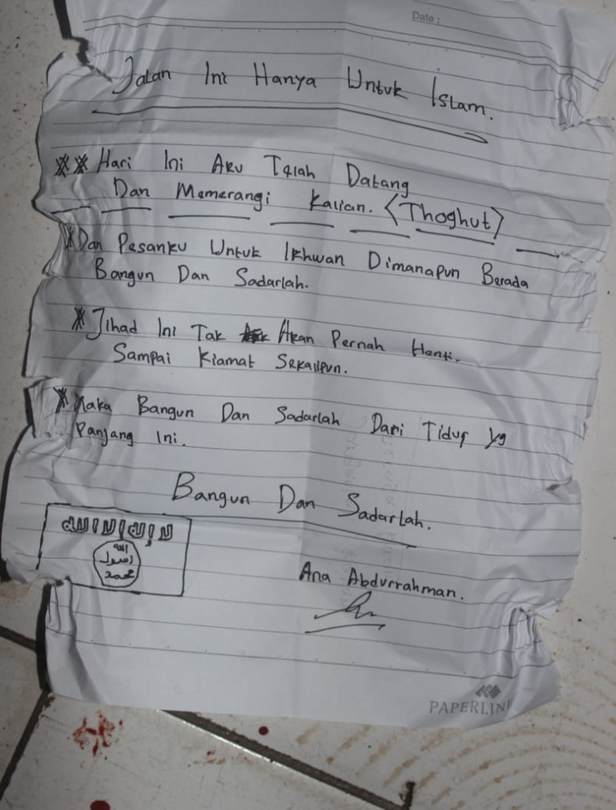 Date :
Jalan Ini Hanya Untuk Islam.
** Hari Ini Aku Telah Datang
Dan Memerangi Kalian. (Thoghut)
* Dan Pesanku Untuk Ikhwan Dimanapun Berada
Bangun Dan Sadarlah.
* Jihad Ini Tak Akan Pernah Henti.
Sampai Kiamat Sekalipun.
* Maka Bangun Dan Sadarlah Dari Tidur Yg
Panjang Ini.
Bangun Dan Sadarlah.
لا إله إلا الله
الله
رسول
محمد
Ana Abdurrahman.
PAPERLINE